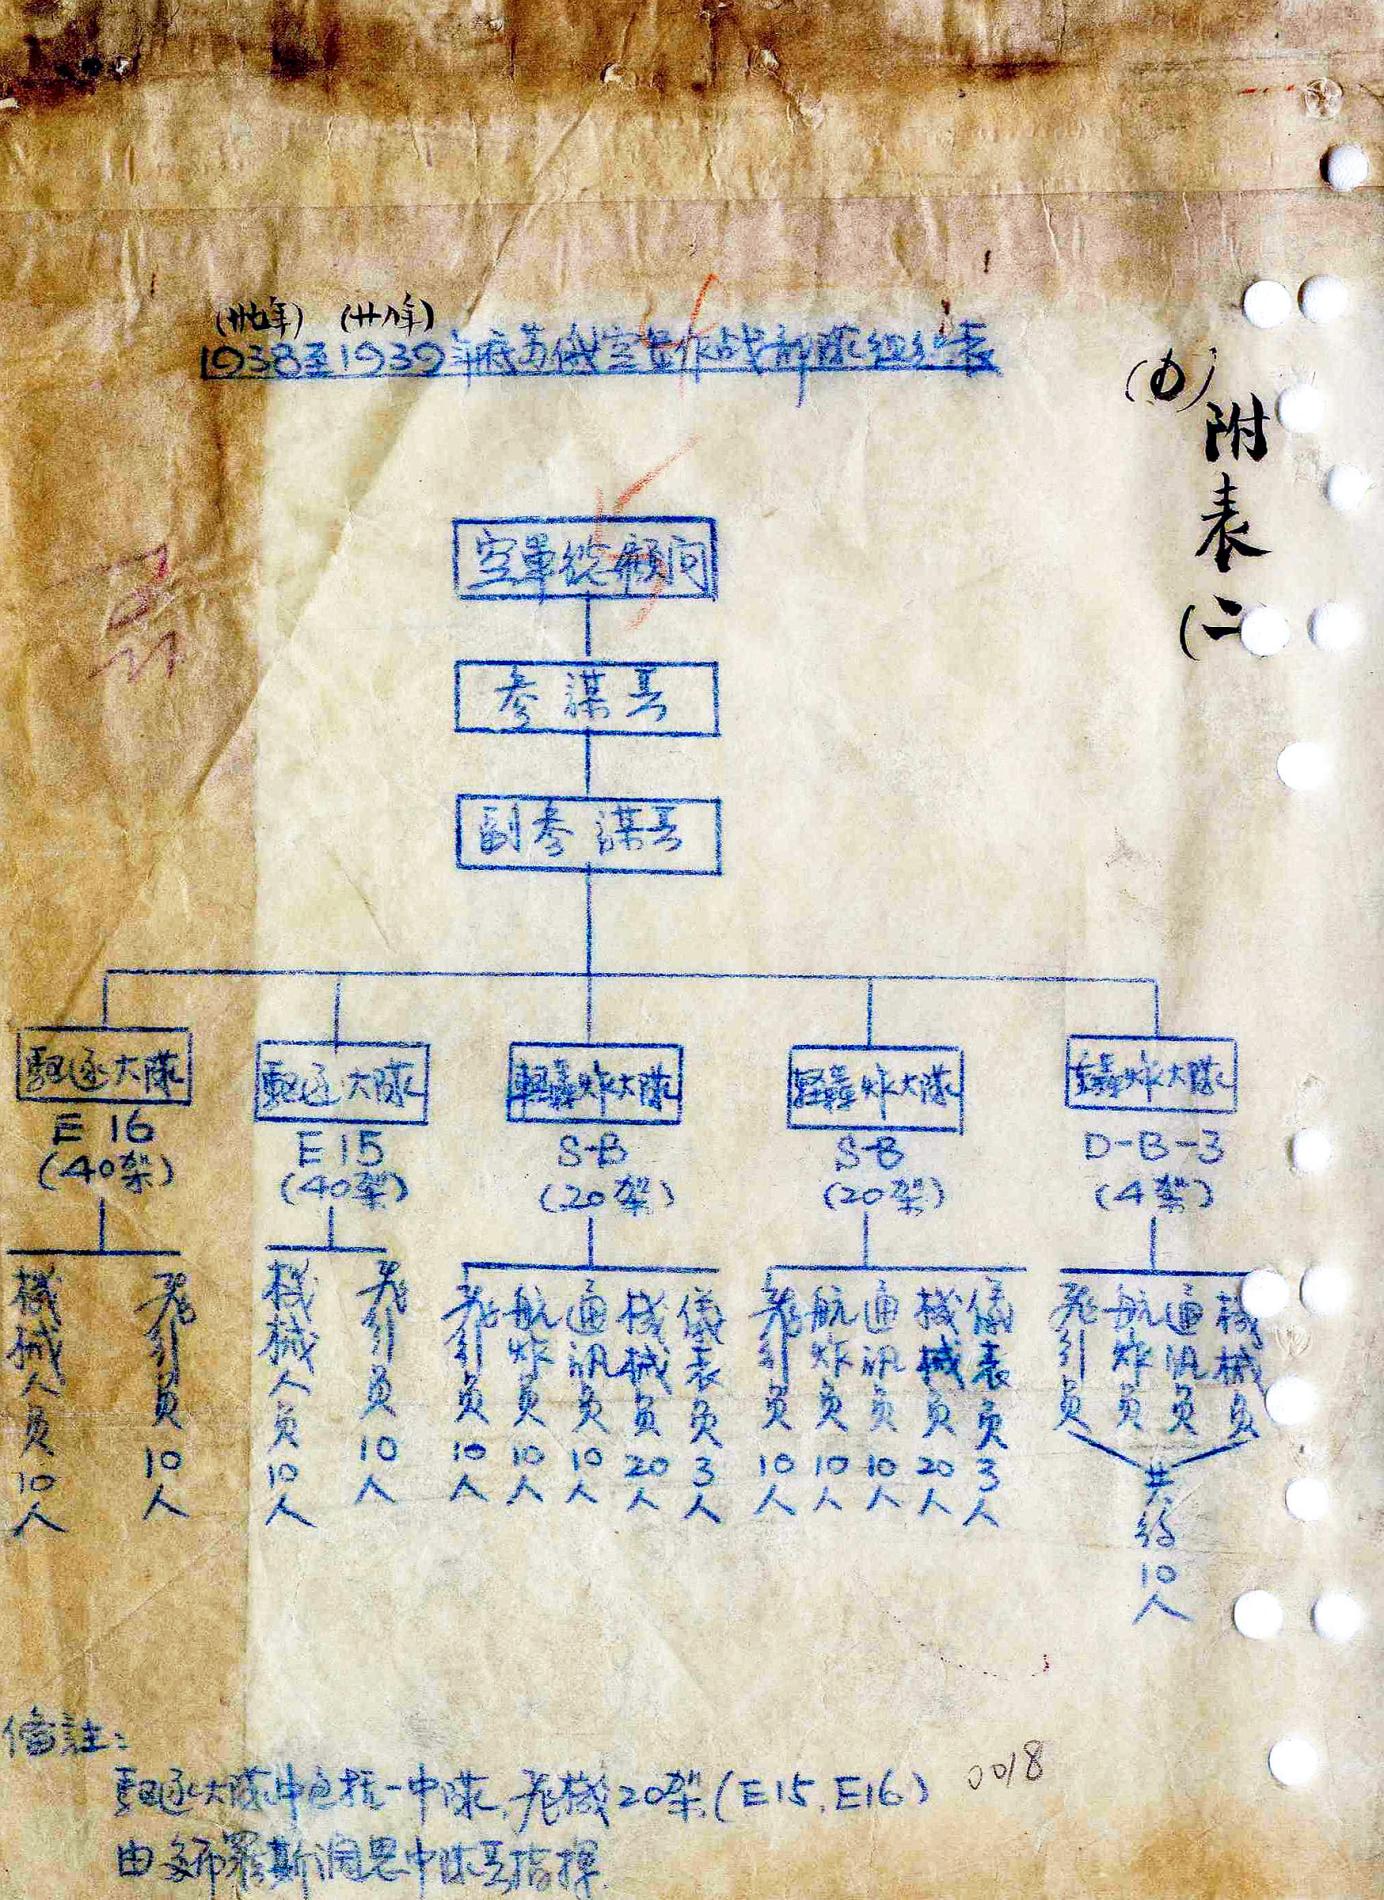 (廿七年) (廿八年)
1938至1939年底苏俄空军作战部隊组织表
附表(二
空軍総顧问
参謀長
副参謀長
駆逐大隊
E 16
(40架)
駆逐大隊
E 15
(40架)
軽轟炸大隊
S-B
(20架)
軽轟炸大隊
S-B
(20架)
重轟炸大隊
D-B-3
(4架)
機械人员10人
飛行員10人
機械人员10人
飛行員10人
飛行员10人
航炸员10人
通訊员10人
機械员20人
儀表员3人
飛行员10人
航炸员10人
通訊员10人
機械员20人
儀表员3人
飛行员
航炸员
通訊员
機械员
共约10人
備註:
駆逐大隊中包括一中隊,飛機20架(E15,E16)
0018
由 羅斯 中隊長指揮